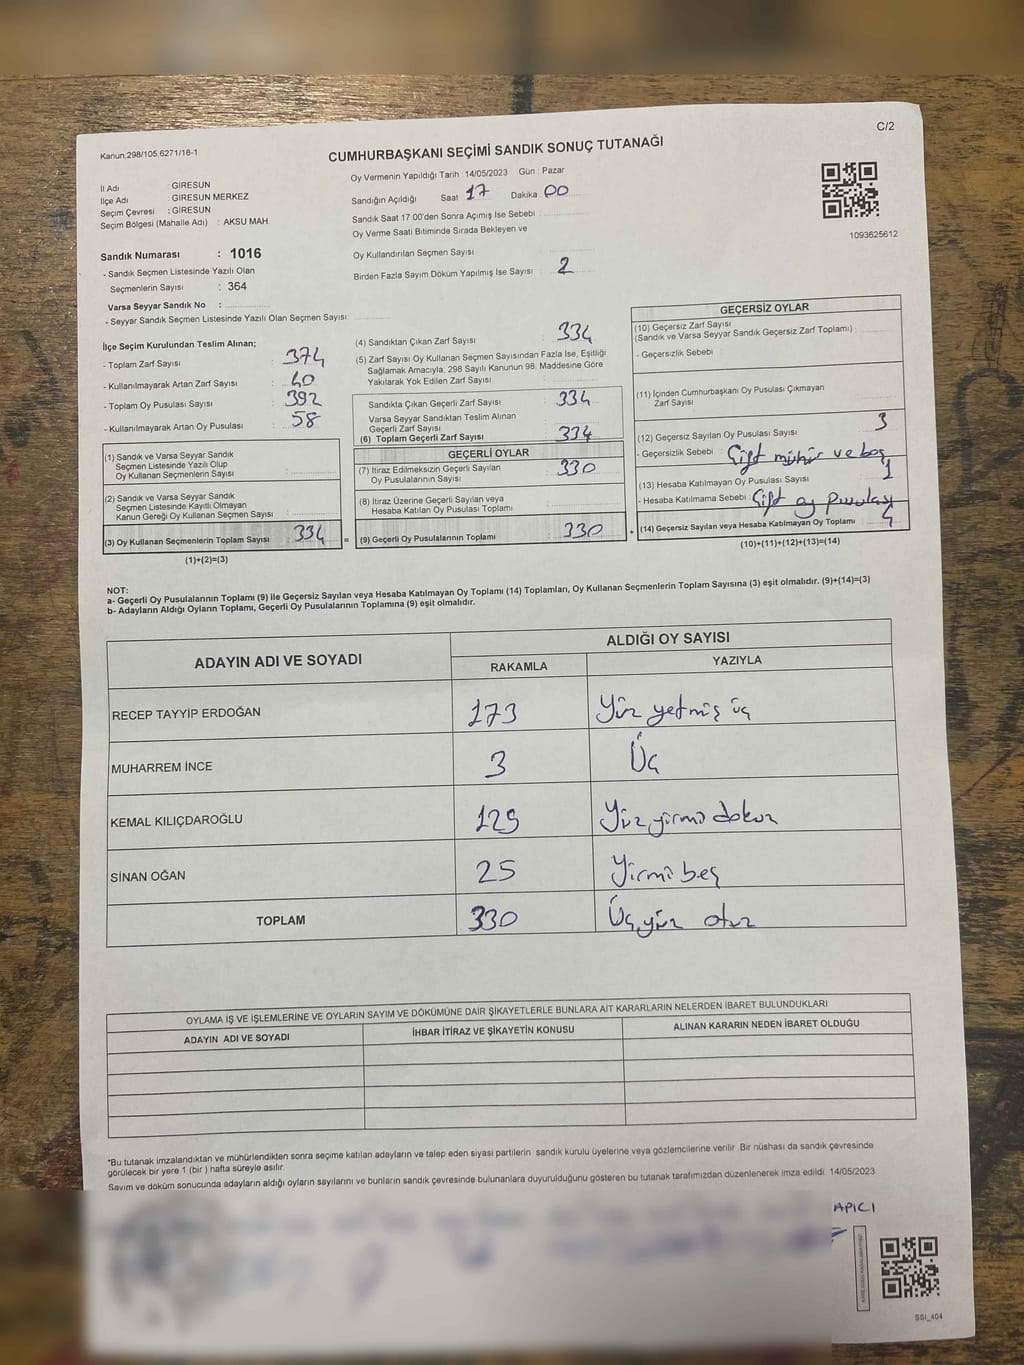 Kanun;298/105;6271/18-1
C/2
CUMHURBAŞKANI SEÇİMİ SANDIK SONUÇ TUTANAĞI
İl Adı : GİRESUN
İlçe Adı : GİRESUN MERKEZ
Seçim Çevresi : GİRESUN
Seçim Bölgesi (Mahalle Adı) : AKSU MAH.
Oy Vermenin Yapıldığı Tarih : 14/05/2023 Gün : Pazar
Sandığın Açıldığı Saat 17 Dakika : 00
Sandık Saat 17 00'den Sonra Açımış İse Sebebi
Oy Verme Saati Bitiminde Sırada Bekleyen ve
Oy Kullandırılan Seçmen Sayısı
Birden Fazla Sayım Döküm Yapılmış İse Sayısı 2
1093625612
Sandık Numarası : 1016
- Sandık Seçmen Listesinde Yazılı Olan
Seçmenlerin Sayısı : 364
Varsa Seyyar Sandık No :
- Seyyar Sandık Seçmen Listesinde Yazılı Olan Seçmen Sayısı:
İlçe Seçim Kurulundan Teslim Alınan;
- Toplam Zarf Sayısı : 374
- Kullanılmayarak Artan Zarf Sayısı : 40
- Toplam Oy Pusulası Sayısı : 392
- Kullanılmayarak Artan Oy Pusulası : 58
(1) Sandık ve Varsa Seyyar Sandık
Seçmen Listesinde Yazılı Olup
Oy Kullanan Seçmenlerin Sayısı :
(2) Sandık ve Varsa Seyyar Sandık
Seçmen Listesinde Kayıtlı Olmayan
Kanun Gereği Oy Kullanan Seçmen Sayısı :
(3) Oy Kullanan Seçmenlerin Toplam Sayısı : 334 =
(1)+(2)=(3)
(4) Sandıktan Çıkan Zarf Sayısı : 334
(5) Zarf Sayısı Oy Kullanan Seçmen Sayısından Fazla İse, Eşitliği
Sağlamak Amacıyla; 298 Sayılı Kanunun 98. Maddesine Göre
Yakılarak Yok Edilen Zarf Sayısı :
Sandıkta Çıkan Geçerli Zarf Sayısı : 334
Varsa Seyyar Sandıktan Teslim Alınan
Geçerli Zarf Sayısı :
(6) Toplam Geçerli Zarf Sayısı : 334
GEÇERLİ OYLAR
(7) İtiraz Edilmeksizin Geçerli Sayılan
Oy Pusulalarının Sayısı : 330
(8) İtiraz Üzerine Geçerli Sayılan veya
Hesaba Katılan Oy Pusulası Toplamı :
(9) Geçerli Oy Pusulalarının Toplamı : 330 +
GEÇERSİZ OYLAR
(10) Geçersiz Zarf Sayısı
(Sandık ve Varsa Seyyar Sandık Geçersiz Zarf Toplamı) :
- Geçersizlik Sebebi :
(11) İçinden Cumhurbaşkanı Oy Pusulası Çıkmayan
Zarf Sayısı :
(12) Geçersiz Sayılan Oy Pusulası Sayısı : 3
- Geçersizlik Sebebi : Çift mühür ve boş
(13) Hesaba Katılmayan Oy Pusulası Sayısı : 1
- Hesaba Katılmama Sebebi : Çift oy pusulası
(14) Geçersiz Sayılan veya Hesaba Katılmayan Oy Toplamı : 4
(10)+(11)+(12)+(13)=(14)
NOT:
a- Geçerli Oy Pusulalarının Toplamı (9) ile Geçersiz Sayılan veya Hesaba Katılmayan Oy Toplamı (14) Toplamları, Oy Kullanan Seçmenlerin Toplam Sayısına (3) eşit olmalıdır. (9)+(14)=(3)
b- Adayların Aldığı Oyların Toplamı, Geçerli Oy Pusulalarının Toplamına (9) eşit olmalıdır.
ADAYIN ADI VE SOYADI
ALDIĞI OY SAYISI
RAKAMLA YAZIYLA
RECEP TAYYİP ERDOĞAN 173 Yüz yetmiş üç
MUHARREM İNCE 3 Üç
KEMAL KILIÇDAROĞLU 129 Yüz yirmi dokuz
SİNAN OĞAN 25 Yirmi beş
TOPLAM 330 Üç yüz otuz
OYLAMA İŞ VE İŞLEMLERİNE VE OYLARIN SAYIM VE DÖKÜMÜNE DAİR ŞİKAYETLERLE BUNLARA AİT KARARLARIN NELERDEN İBARET BULUNDUKLARI
ADAYIN ADI VE SOYADI İHBAR İTİRAZ VE ŞİKAYETİN KONUSU ALINAN KARARIN NEDEN İBARET OLDUĞU
*Bu tutanak imzalandıktan ve mühürlendikten sonra seçime katılan adayların ve talep eden siyasi partilerin sandık kurulu üyelerine veya gözlemcilerine verilir Bir nüshası da sandık çevresinde
görülecek bir yere 1 (bir ) hafta süreyle asılır.
Sayım ve döküm sonucunda adayların aldığı oyların sayılarını ve bunların sandık çevresinde bulunanlara duyurulduğunu gösteren bu tutanak tarafımızdan düzenlenerek imza edildi. 14/05/2023
APICI
SSI_404